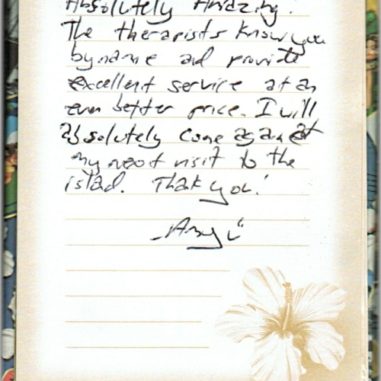 Absolutely Amazing!
The therapists know you
by name and provide
excellent service at an
even better price. I will
absolutely come again at
my next visit to the
island. Thank you!
-Amy